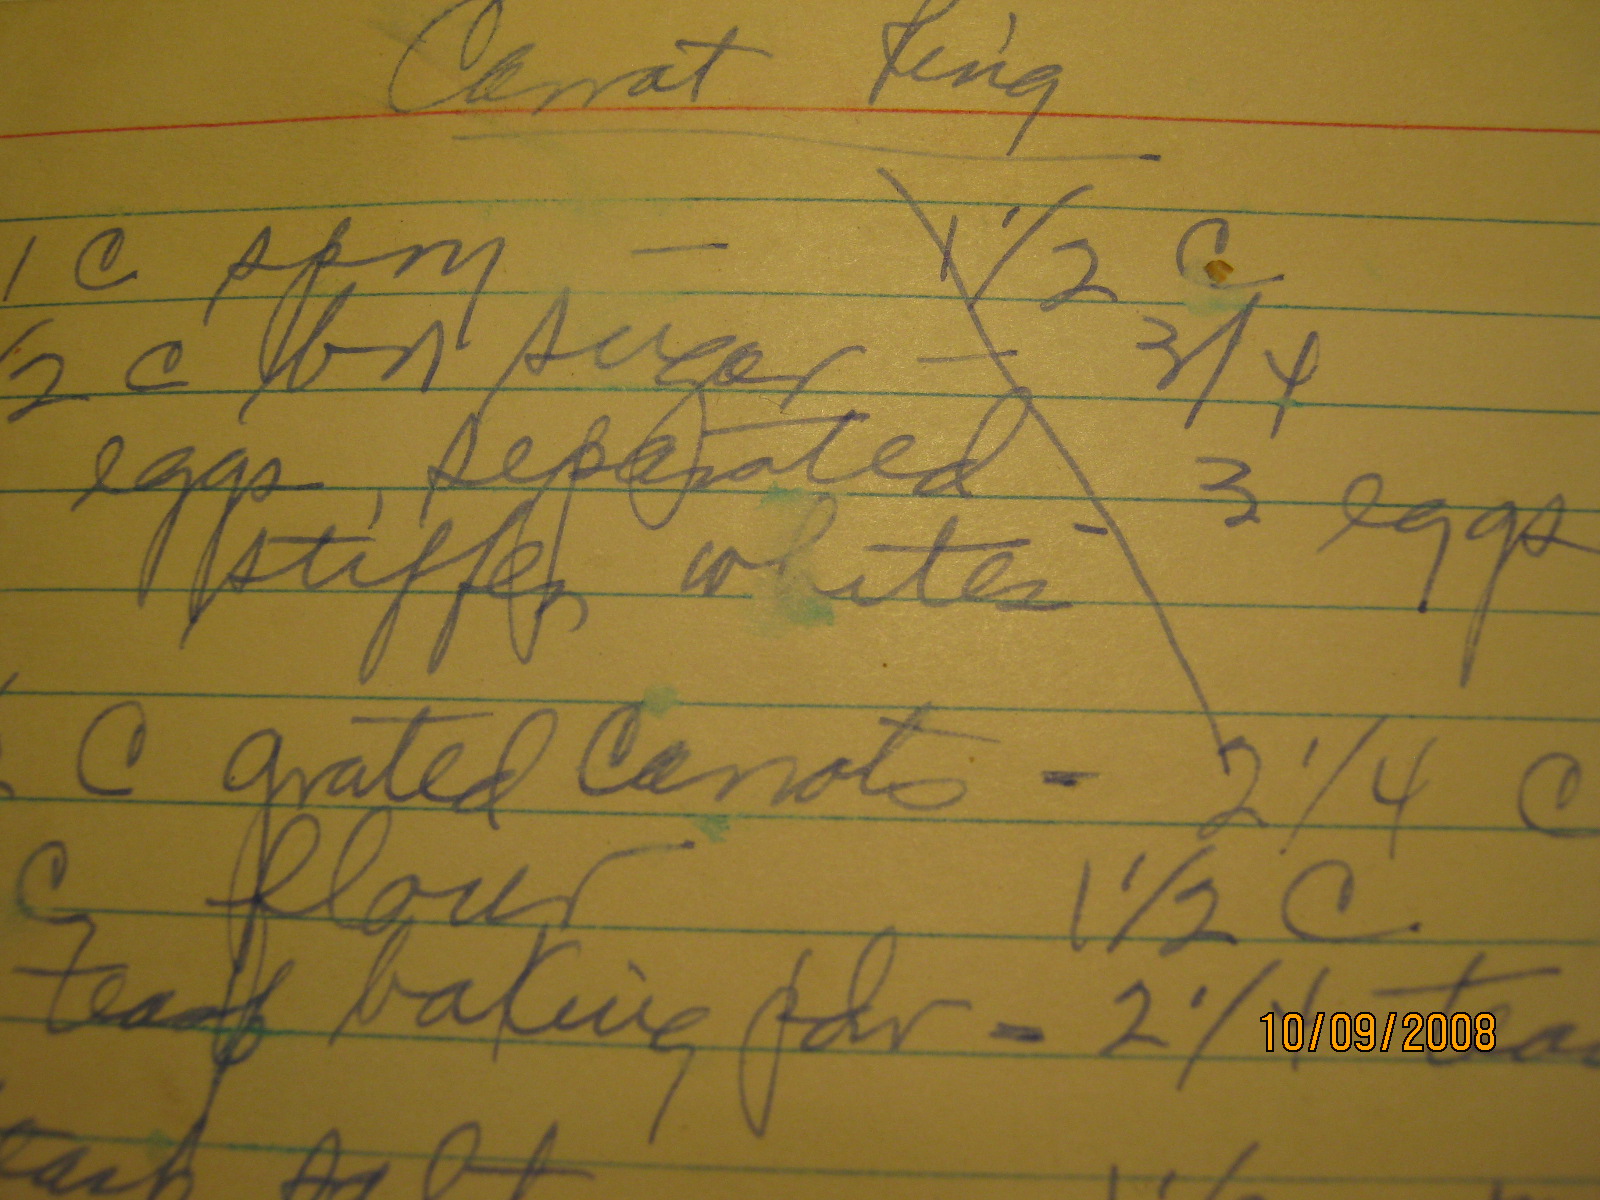 Carrot Ring
1 C spry — 1 1/2 C
1/2 C brn sugar — 3/4
eggs, separated - 3 eggs
stiffen whites
C grated Carrots - 2 1/4 C
C flour 1 1/2 C
teasp baking pdr - 2 1/4 tea
10/09/2008
teasp salt 1 1/2